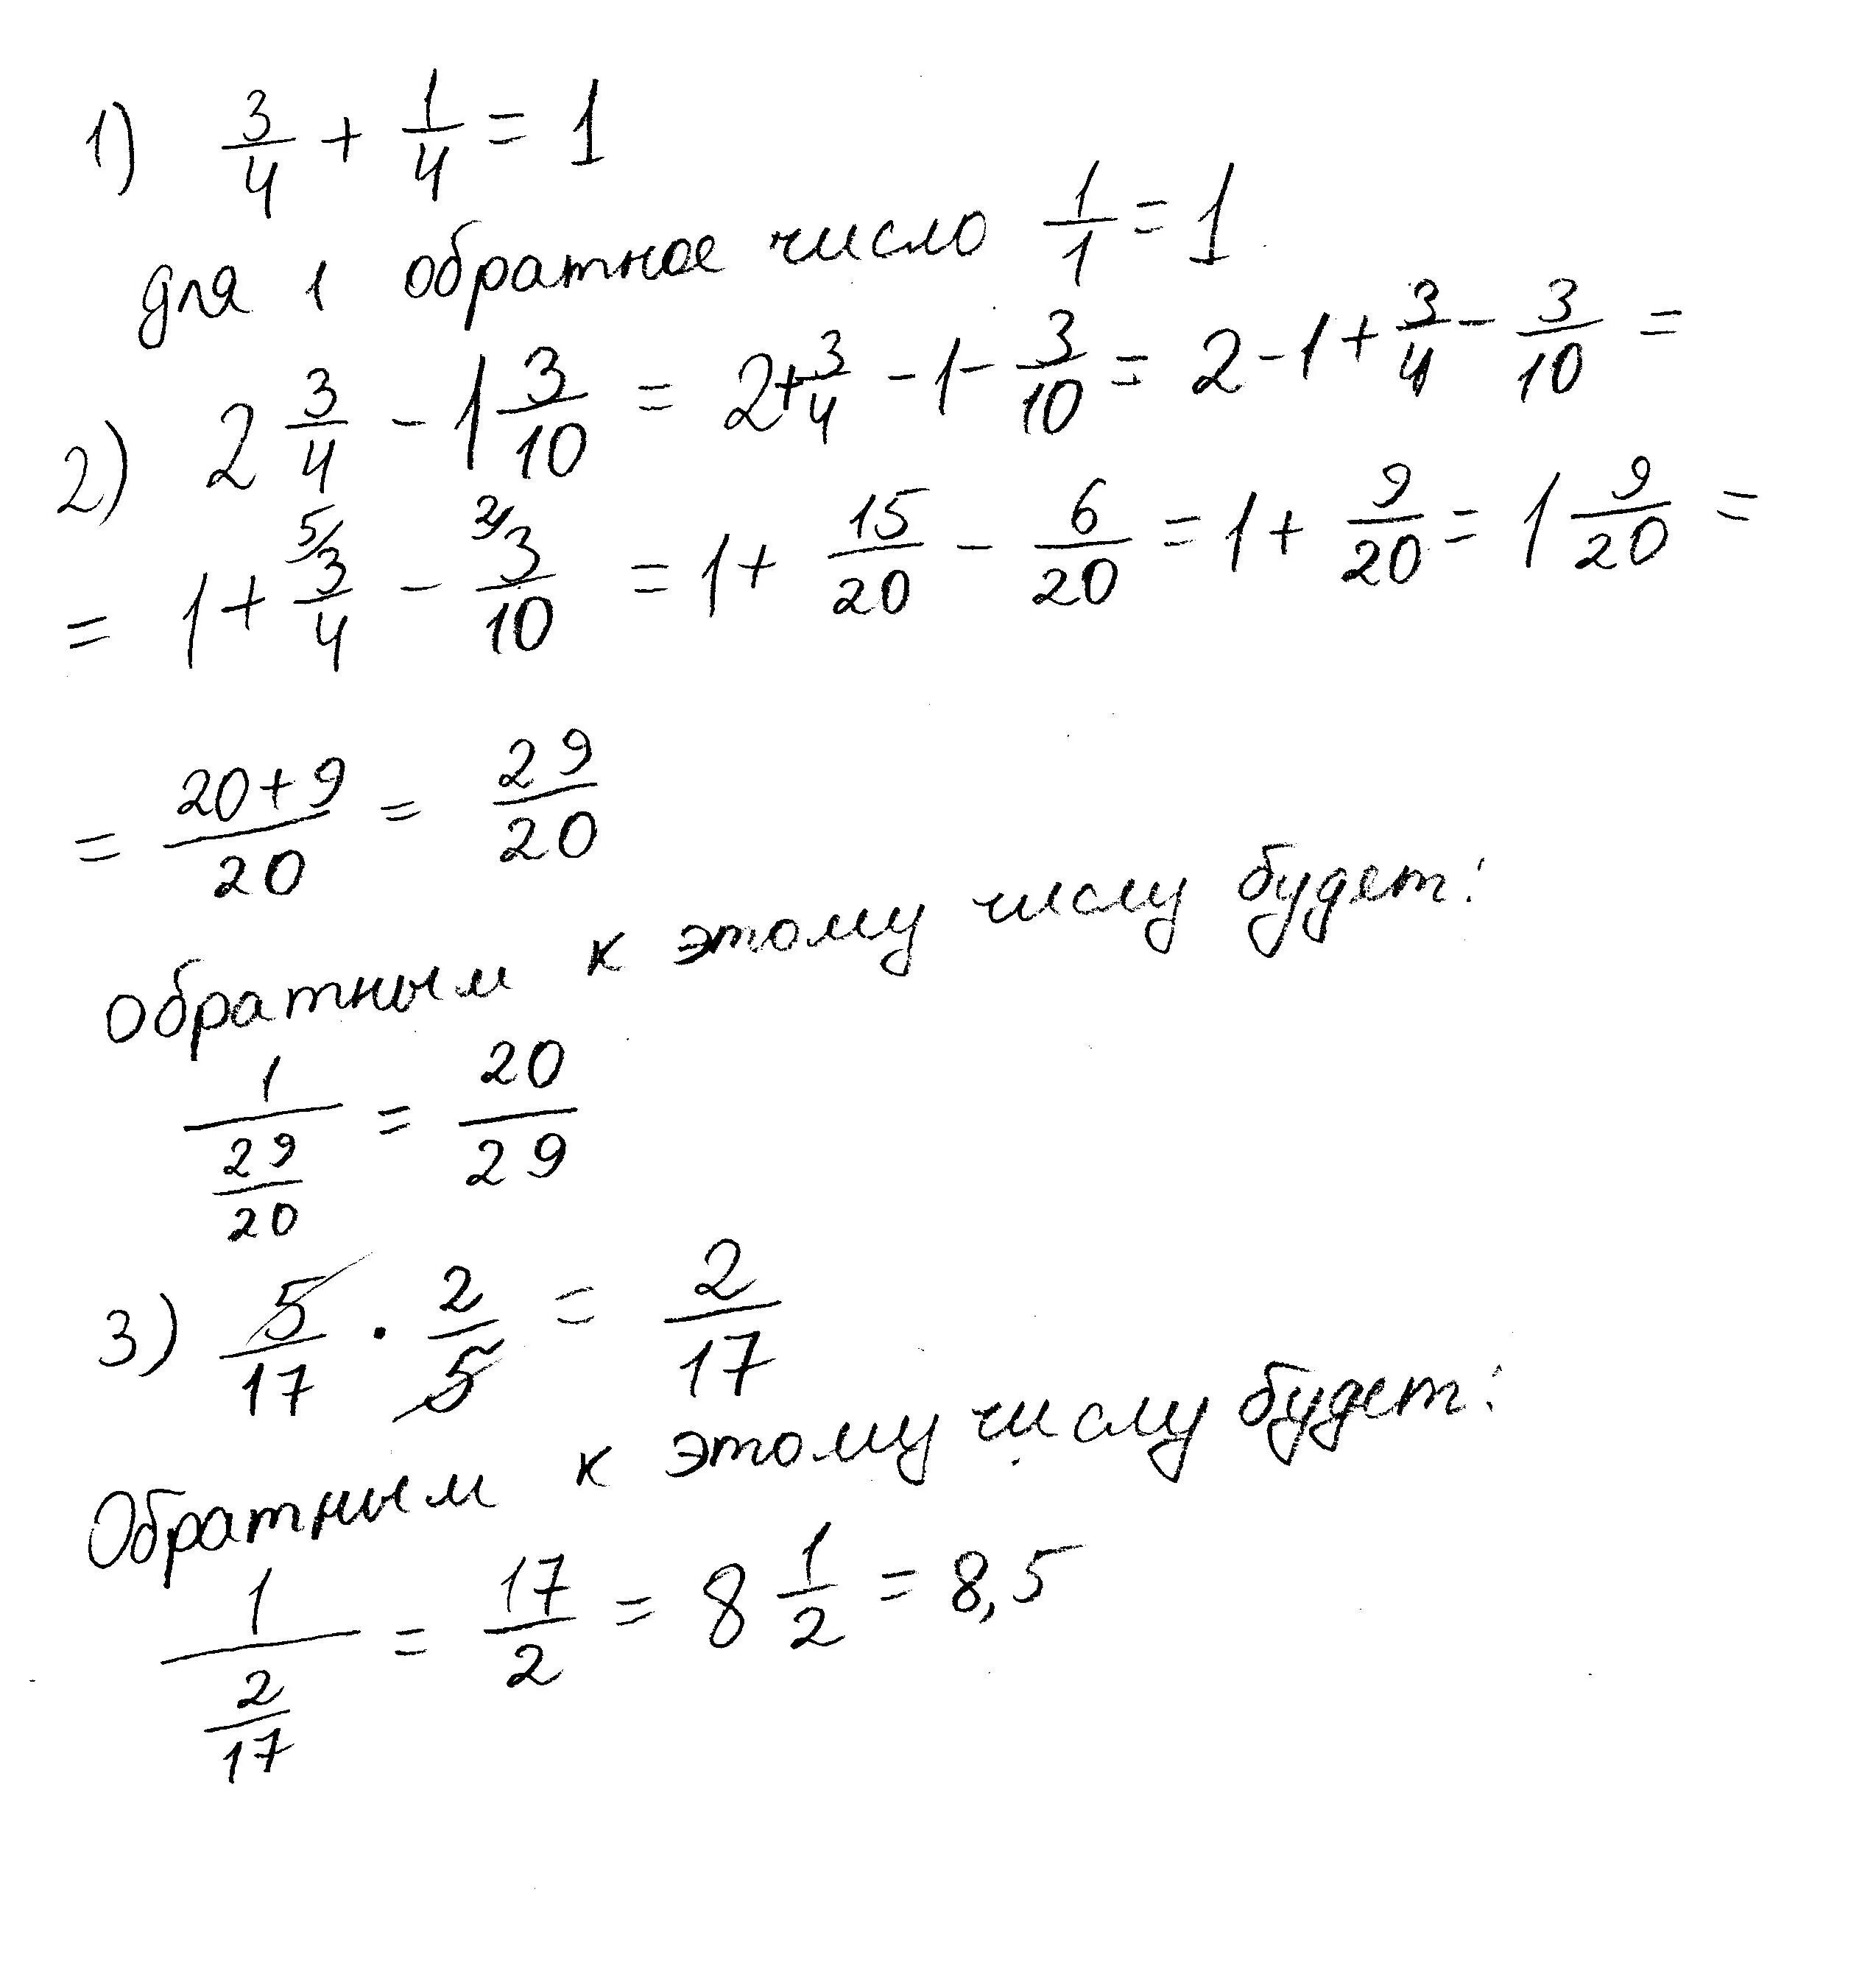 1) 3/4 + 1/4 = 1
для 1 обратное число 1/1 = 1
2) 2 3/4 - 1 3/10 = 2 + 3/4 - 1 - 3/10 = 2 - 1 + 3/4 - 3/10 =
= 1 + 5/ 3/4 - 2/ 3/10 = 1 + 15/20 - 6/20 = 1 + 9/20 = 1 9/20 =
= (20+9)/20 = 29/20
Обратным к этому числу будет:
1/(29/20) = 20/29
3) 5/17 · 2/5 = 2/17
Обратным к этому числу будет:
1/(2/17) = 17/2 = 8 1/2 = 8,5